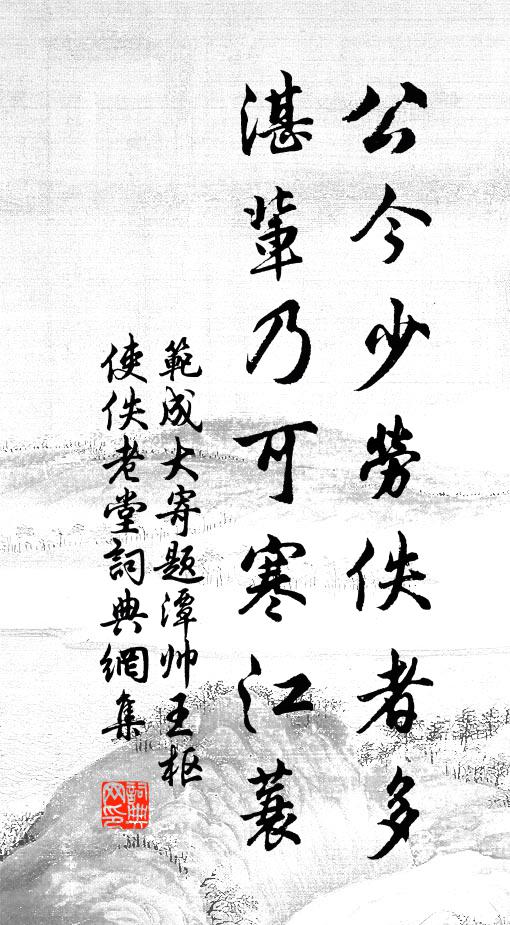 公今少勞佚者多
湛輩乃可寒江蓑
範成大寄題潭帅王枢
使佚老堂詞典網集
詞典
网印